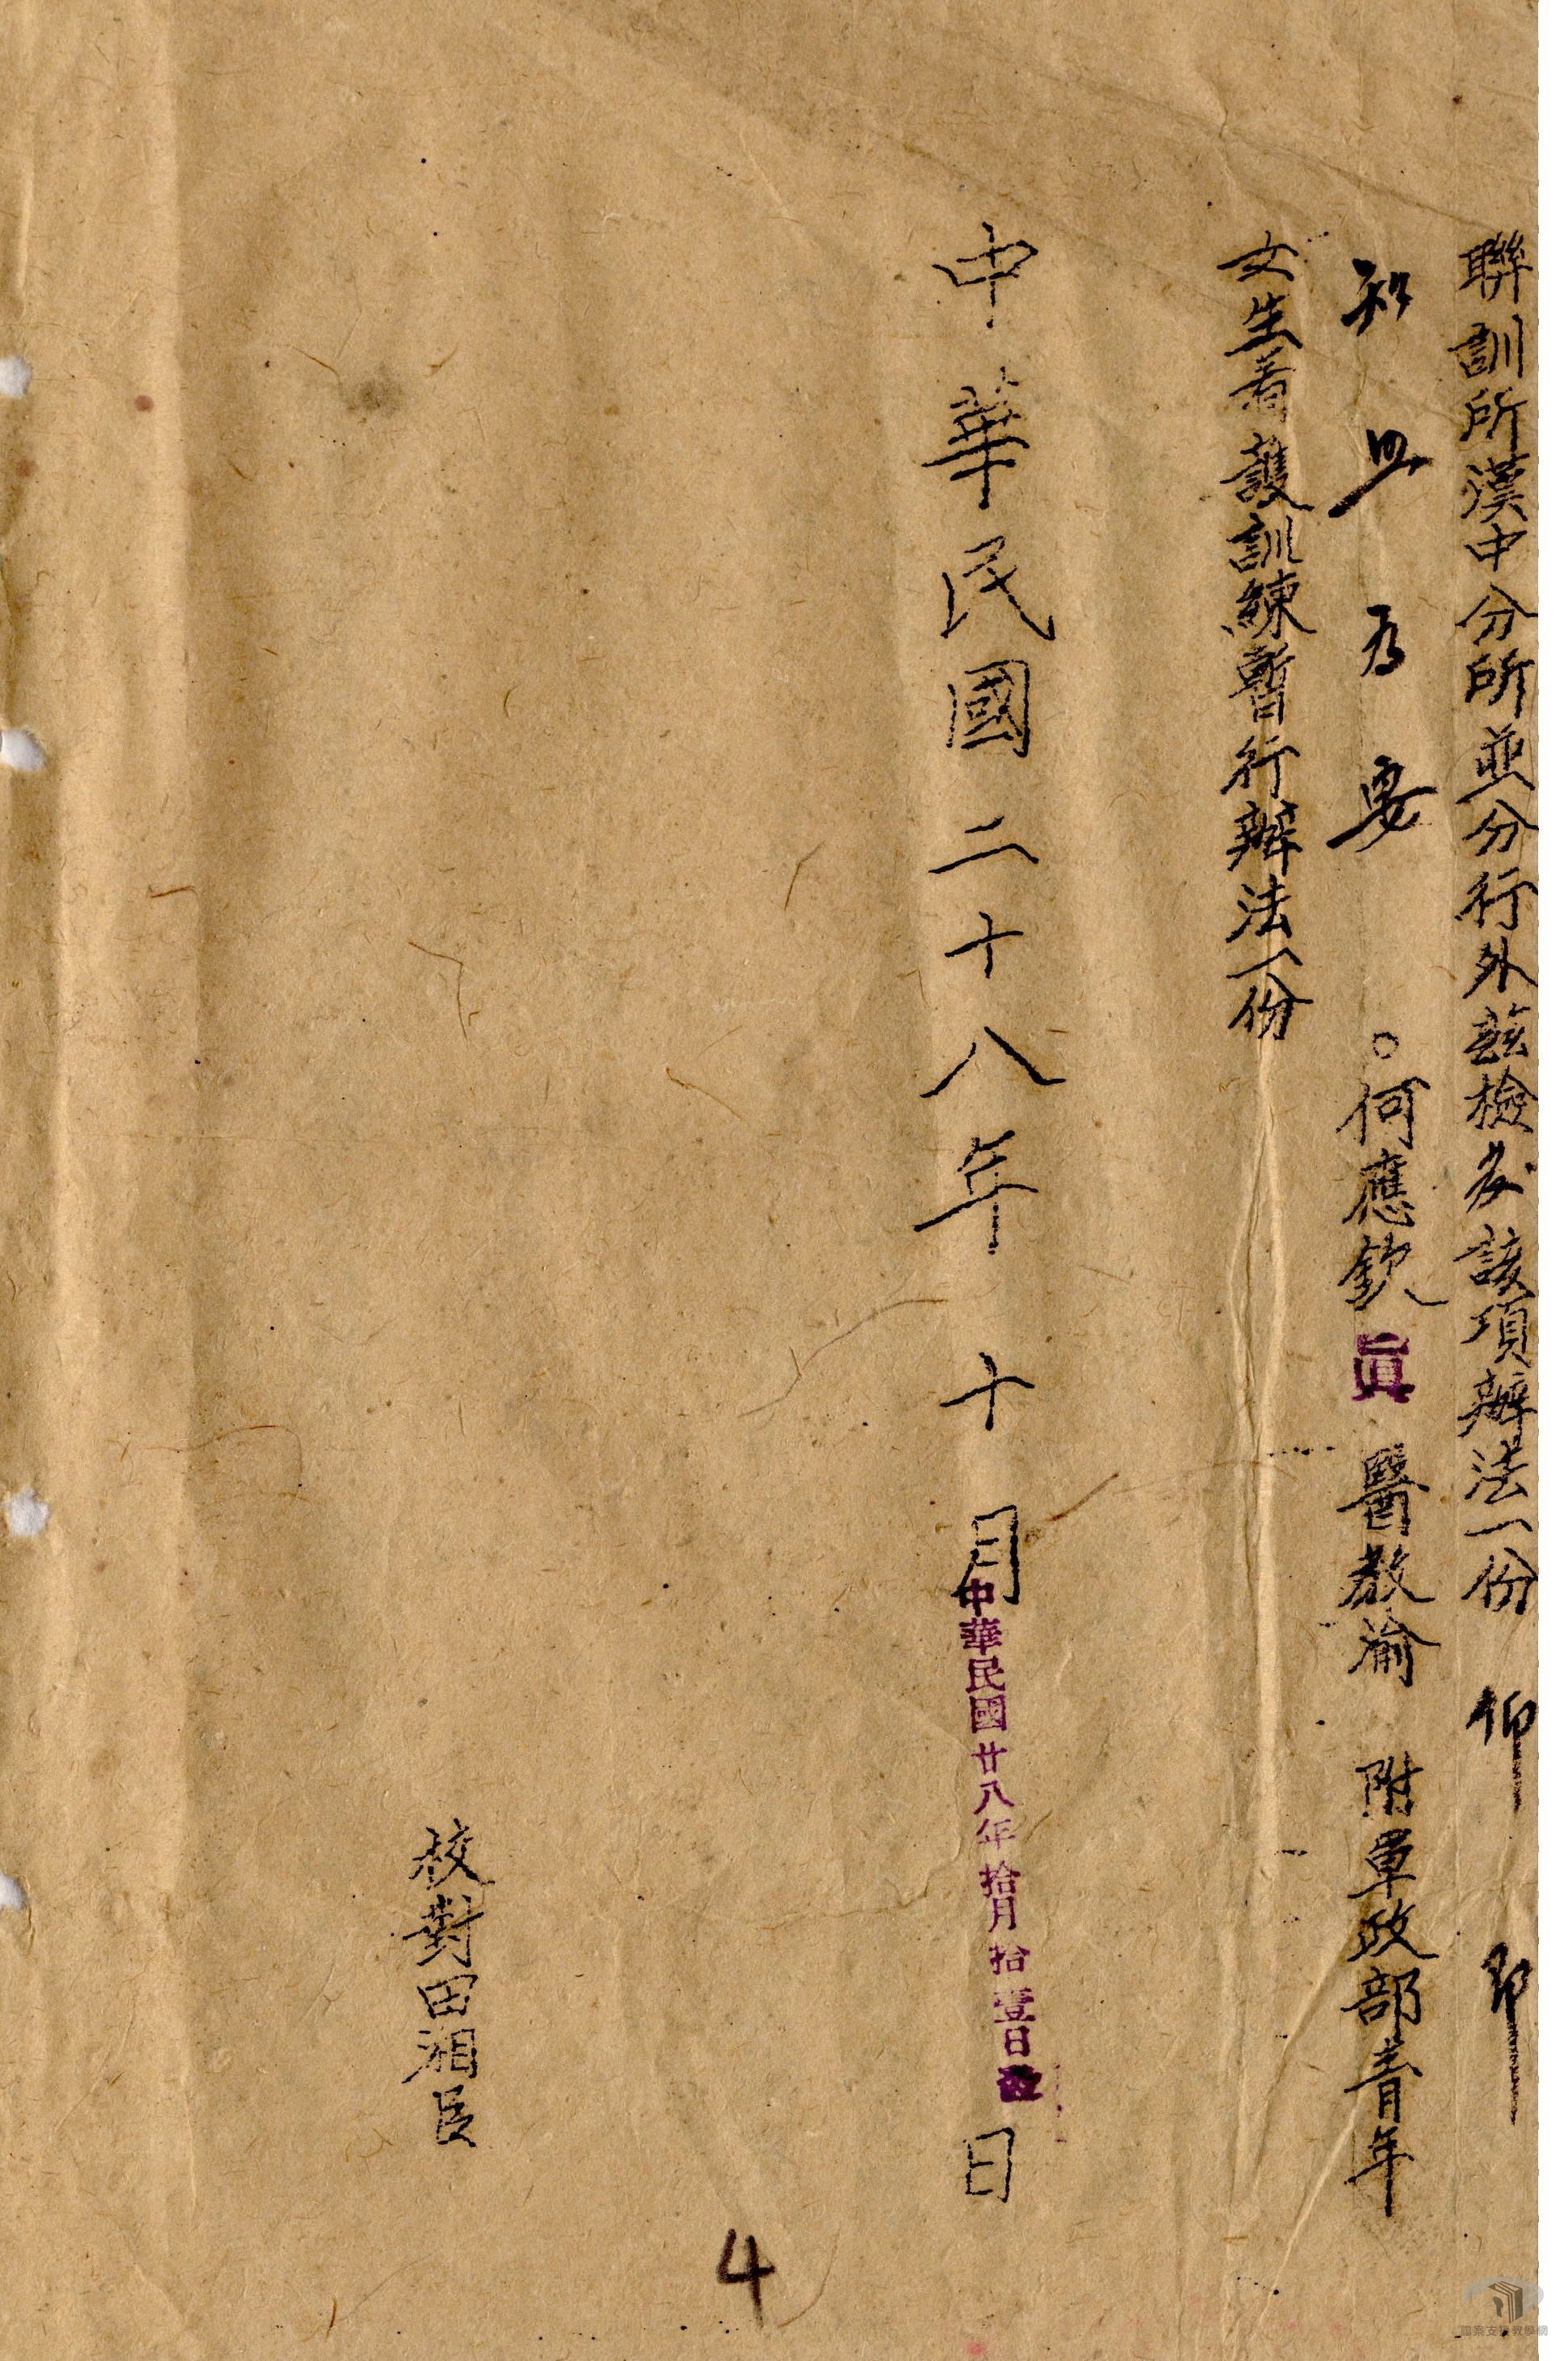 聯訓所漢中分所並分行外茲檢發該項辦法一份仰即
知照為要。何應欽眞醫教渝附軍政部青年
女生看護訓練暫行辦法一份
中華民國二十八年十月 日
中華民國廿八年拾月拾壹日
校對田湘臣
4